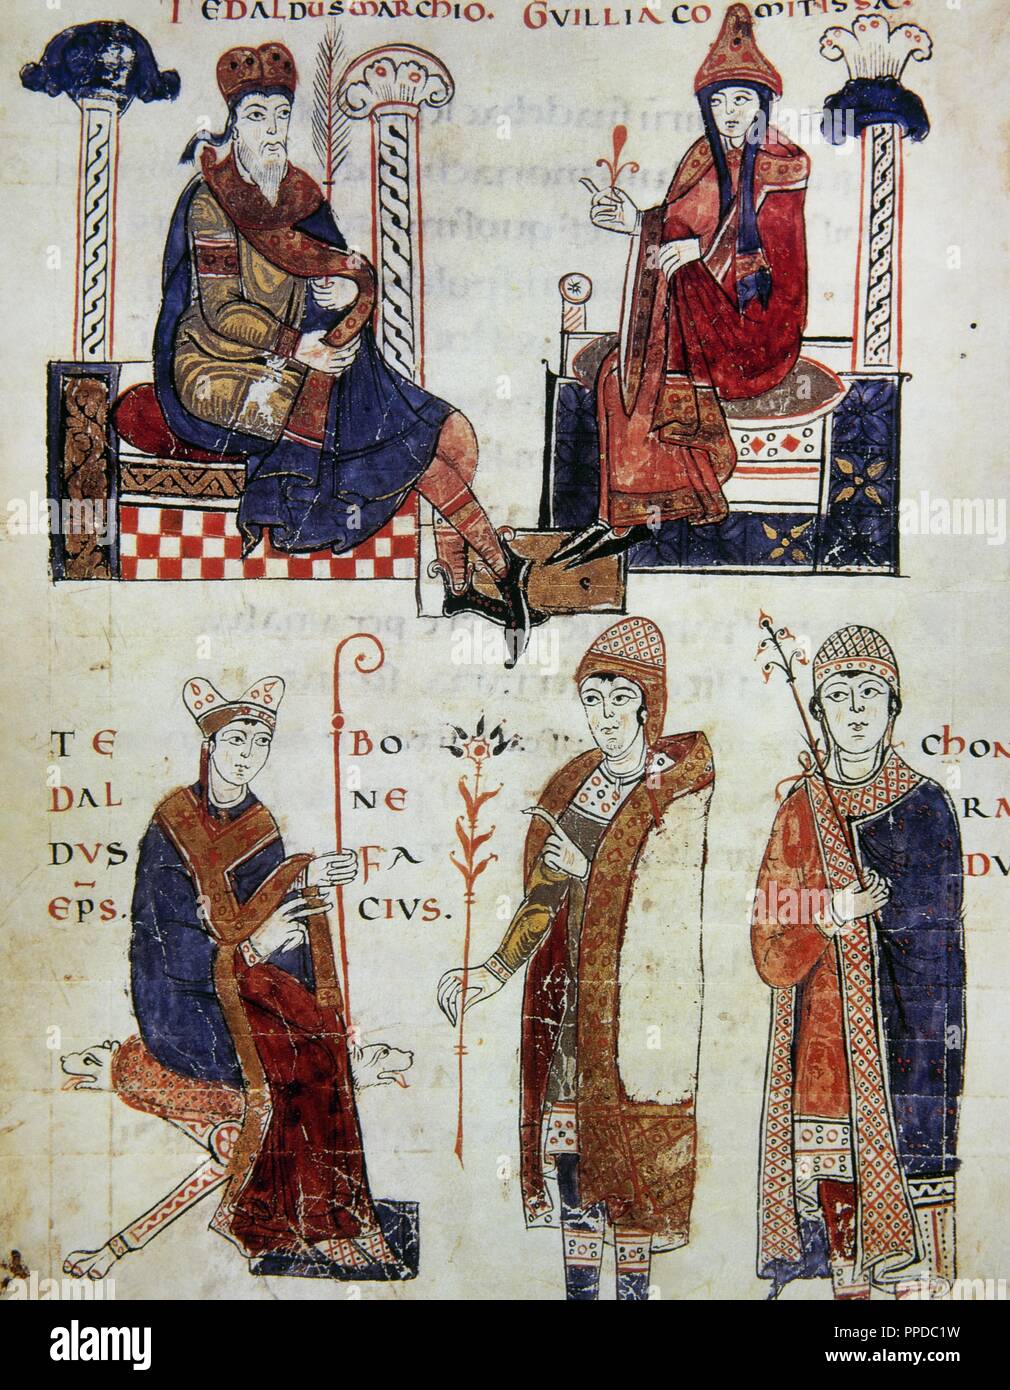 TEDALDUS MARCHIO. GUILLIA COMITISSA.
TE
DAL
DVS
EPS.
BO
NE
FA
CIVS.
CHON
RA
DV
alamy
Image ID: PPDC1W
www.alamy.com